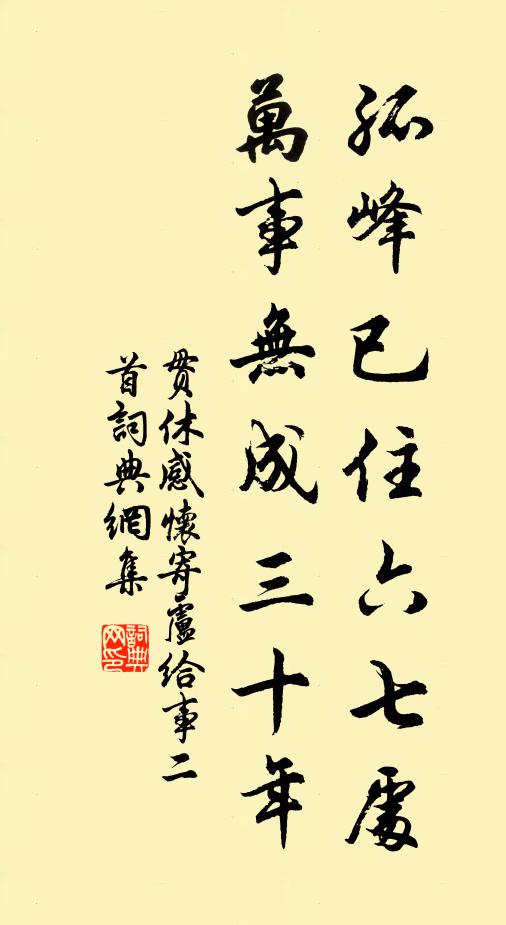 孤峰已住六七處
萬事無成三十年
貫休感懷寄盧給事二
首詞典網集
詞典
网印